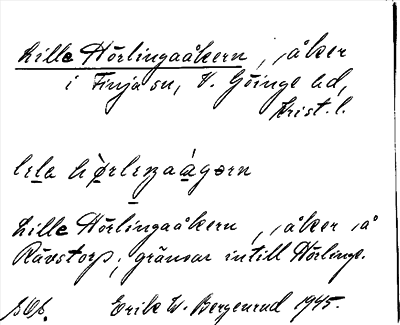 Lille Hörlingaåkern, , åker
i Finja sn, V. Göinge hd,
Krist. l.
lɩla hørlɩŋaágərn
Lille Hörlingaåkern, , åker , å
Rävstorp; gränsar intill Hörlinge.
Erik W. Bergenrud 1945.